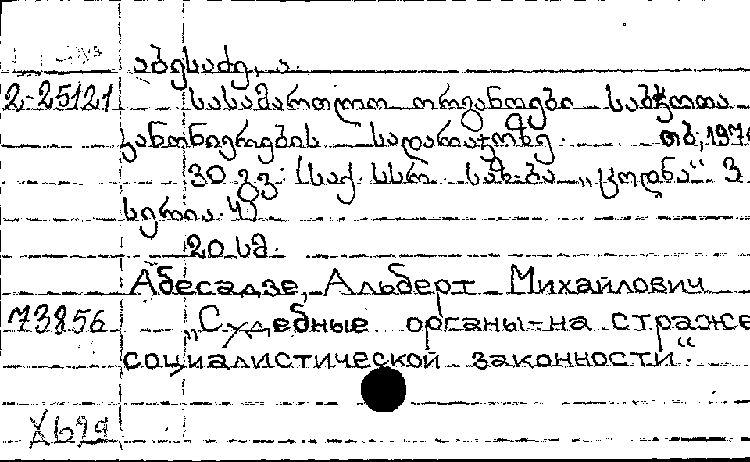 აბესაძე, ა.
2-25121 სასამართლო ორგანოები საბჭოთა
კანონიერების სადარაჯოზე. თბ, 197
30 გვ. (საქ. სსრ საზ-ბა „ცოდნა“ 3
სერია. 4)
20 სმ.
Абесадзе, Альберт Михайлович
73856 „Судебные органы-на страже
социалистической законности“.